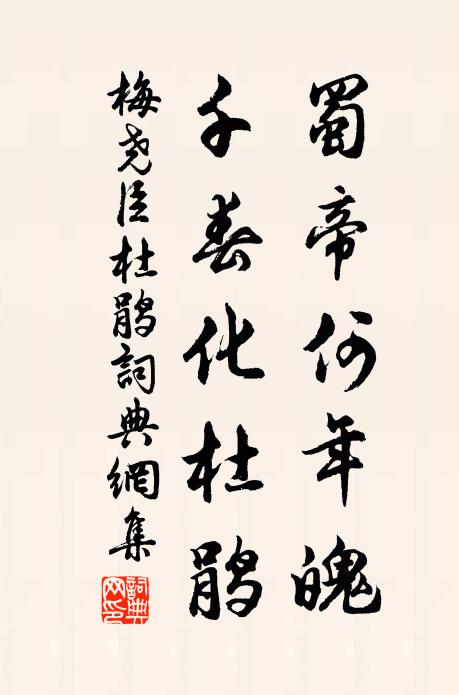 蜀帝何年魄
千春化杜鹃
梅尧臣杜鹃詞典網集
詞典网印